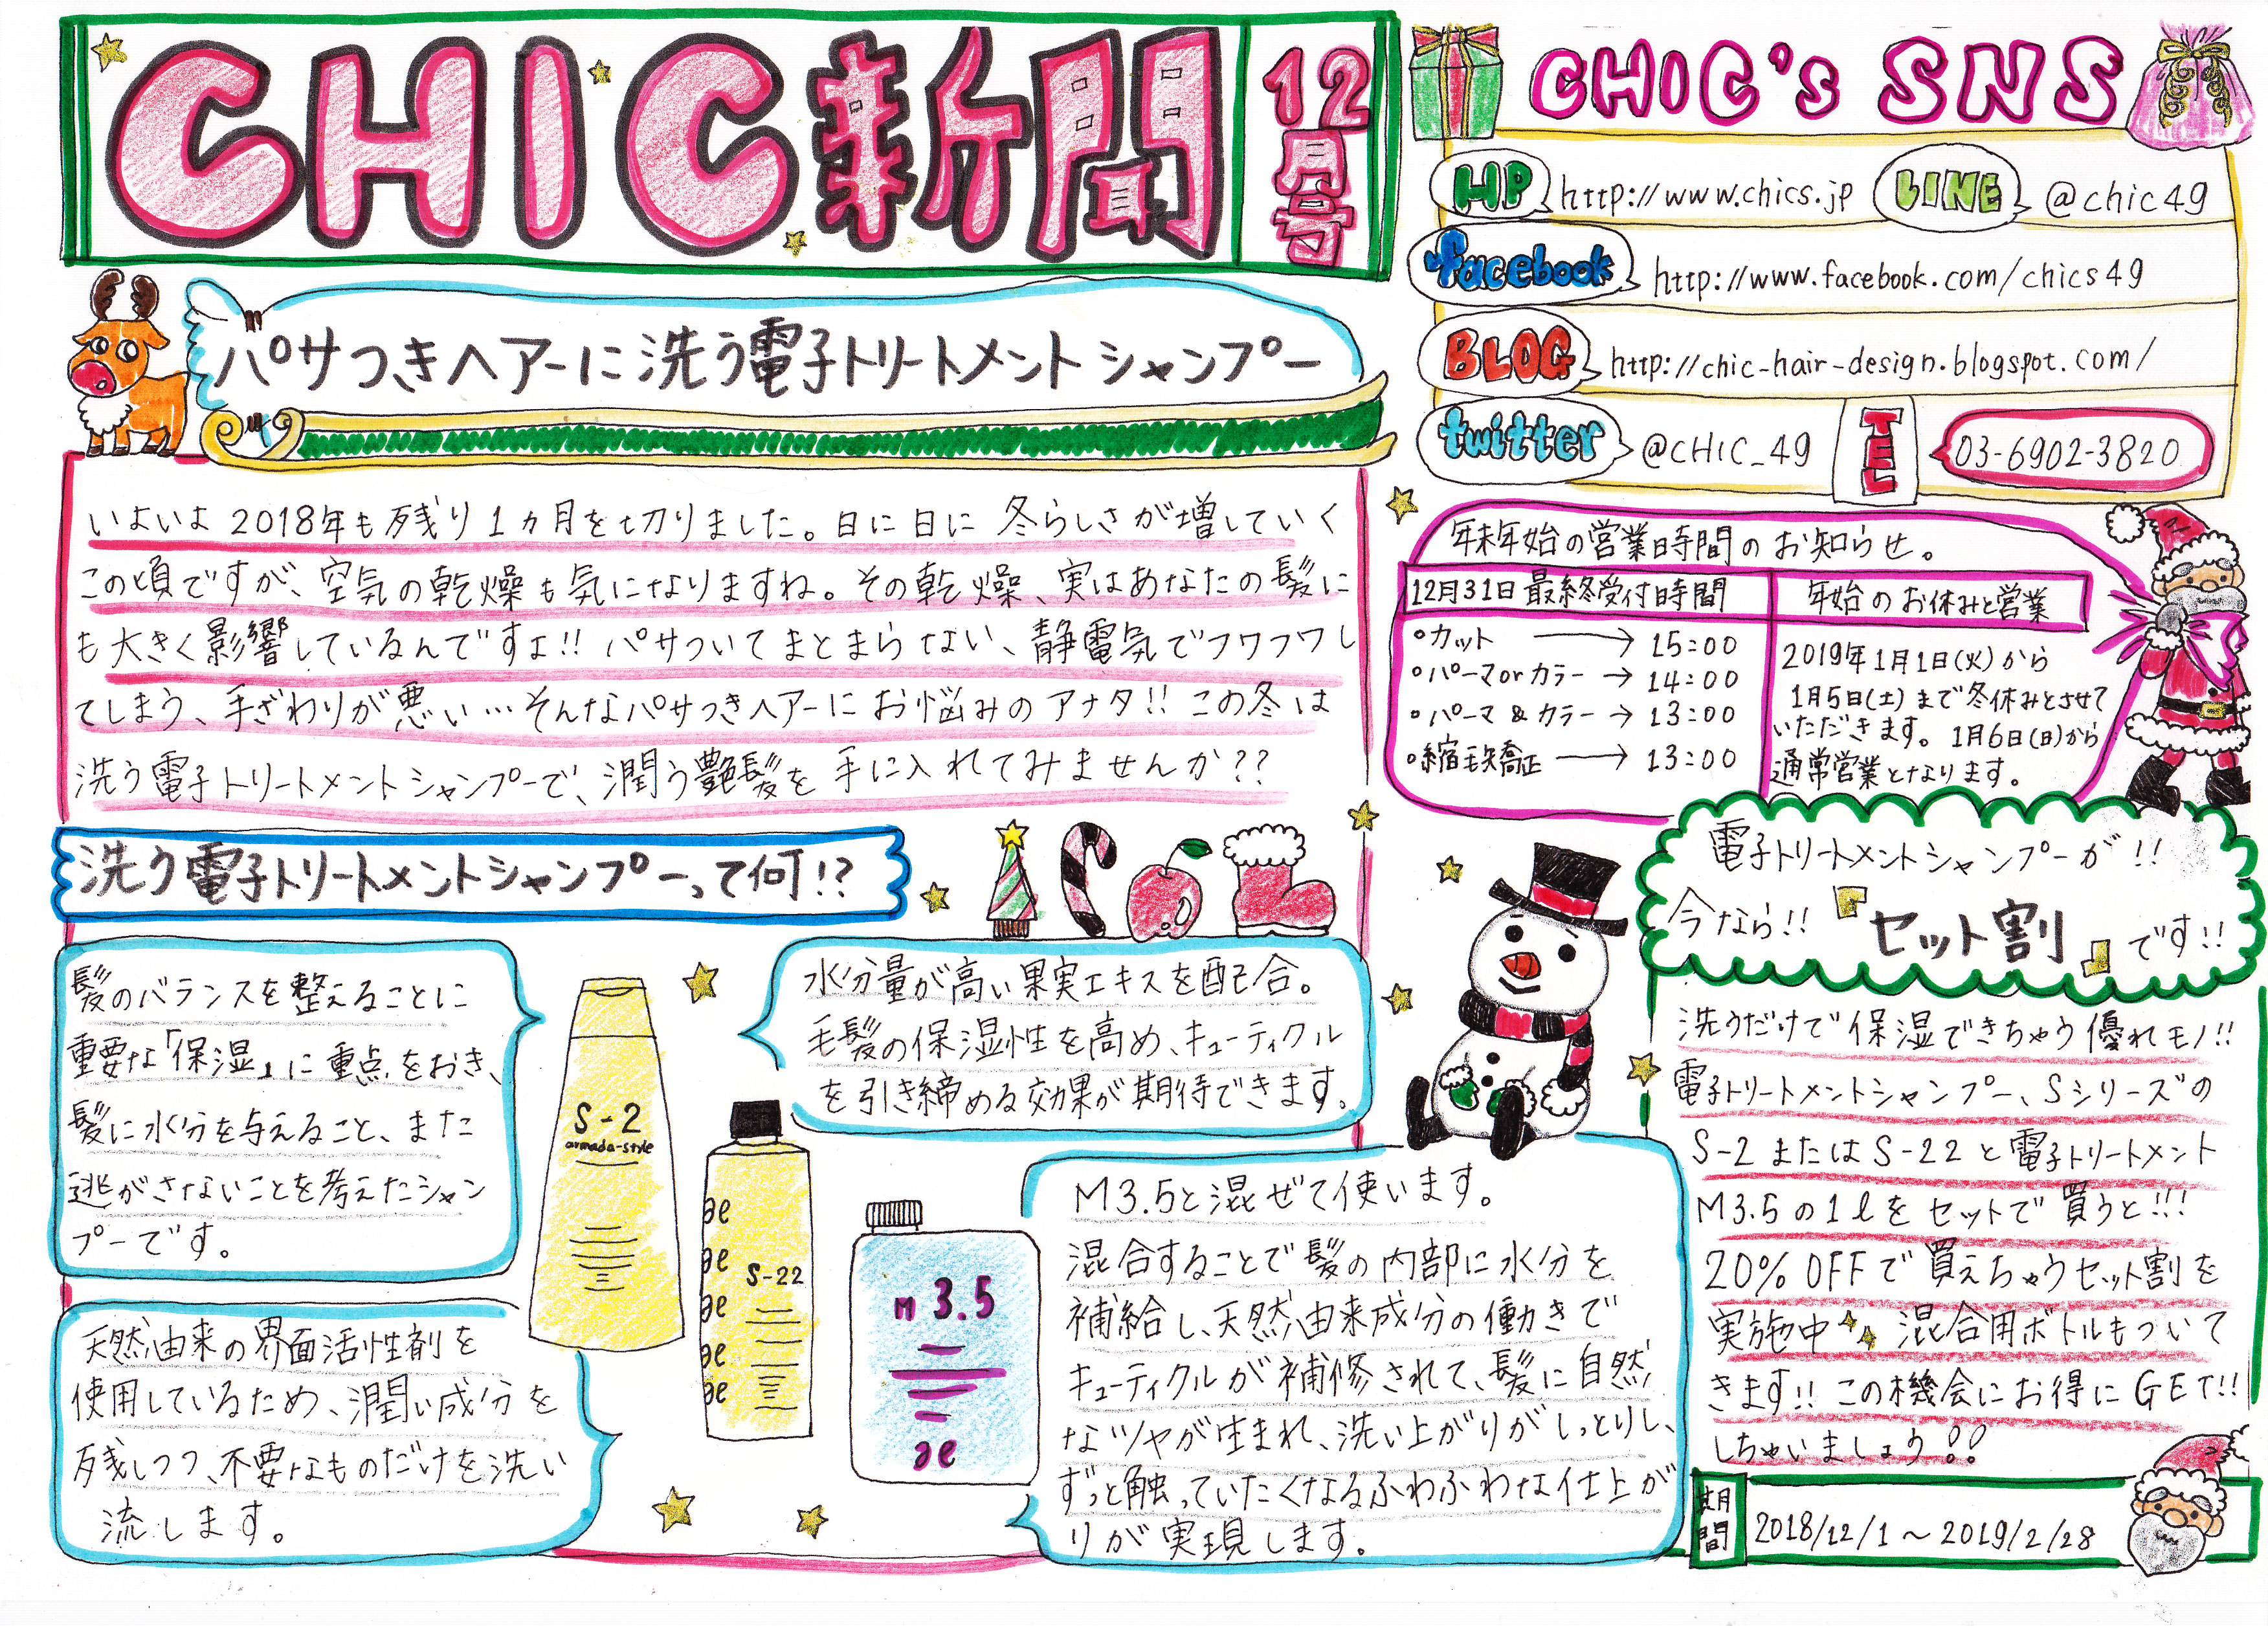 CHIC新聞
12月号
パサつきヘアーに洗う電子トリートメントシャンプー
いよいよ2018年も残り1ヵ月を切りました。日に日に冬らしさが増していく
この頃ですが、空気の乾燥も気になりますね。その乾燥、実はあなたの髪に
も大きく影響しているんですよ!! パサついてまとまらない、静電気でフワフワし
てしまう、手ざわりが悪い…そんなパサつきヘアーにお悩みのアナタ!! この冬は
洗う電子トリートメントシャンプーで、潤う艶髪を手に入れてみませんか??
洗う電子トリートメントシャンプーって何!?
髪のバランスを整えることに
重要な「保湿」に重点をおき、
髪に水分を与えること、また
逃がさないことを考えたシャン
プーです。
水分量が高い果実エキスを配合。
毛髪の保湿性を高め、キューティクル
を引き締める効果が期待できます。
天然由来の界面活性剤を
使用しているため、潤い成分を
残しつつ、不要なものだけを洗い
流します。
S-2
armada-style
æ
æ
æ
æ
æ
S-22
M3.5
æ
M3.5と混ぜて使います。
混合することで髪の内部に水分を
補給し、天然由来成分の働きで
キューティクルが補修されて、髪に自然
なツヤが生まれ、洗い上がりがしっとりし、
ずっと触っていたくなるふわふわな仕上が
りが実現します。
CHIC's SNS
HP http://www.chics.jp LINE @chic49
facebook http://www.facebook.com/chics49
BLOG http://chic-hair-design.blogspot.com/
twitter @CHIC_49 TEL 03-6902-3820
年末年始の営業時間のお知らせ。
12月31日最終受付時間
・カット → 15:00
・パーマorカラー → 14:00
・パーマ&カラー → 13:00
・縮毛矯正 → 13:00
年始のお休みと営業
2019年1月1日(火)から
1月5日(土)まで冬休みとさせて
いただきます。1月6日(日)から
通常営業となります。
電子トリートメントシャンプーが!!
今なら!!『セット割』です!!
洗うだけで保湿できちゃう優れモノ!!
電子トリートメントシャンプー、Sシリーズの
S-2またはS-22と電子トリートメント
M3.5の1ℓをセットで買うと!!!
20%OFFで買えちゃうセット割を
実施中 混合用ボトルもついて
きます!! この機会にお得にGET!!
しちゃいましょう!!
期間 2018/12/1～2019/2/28